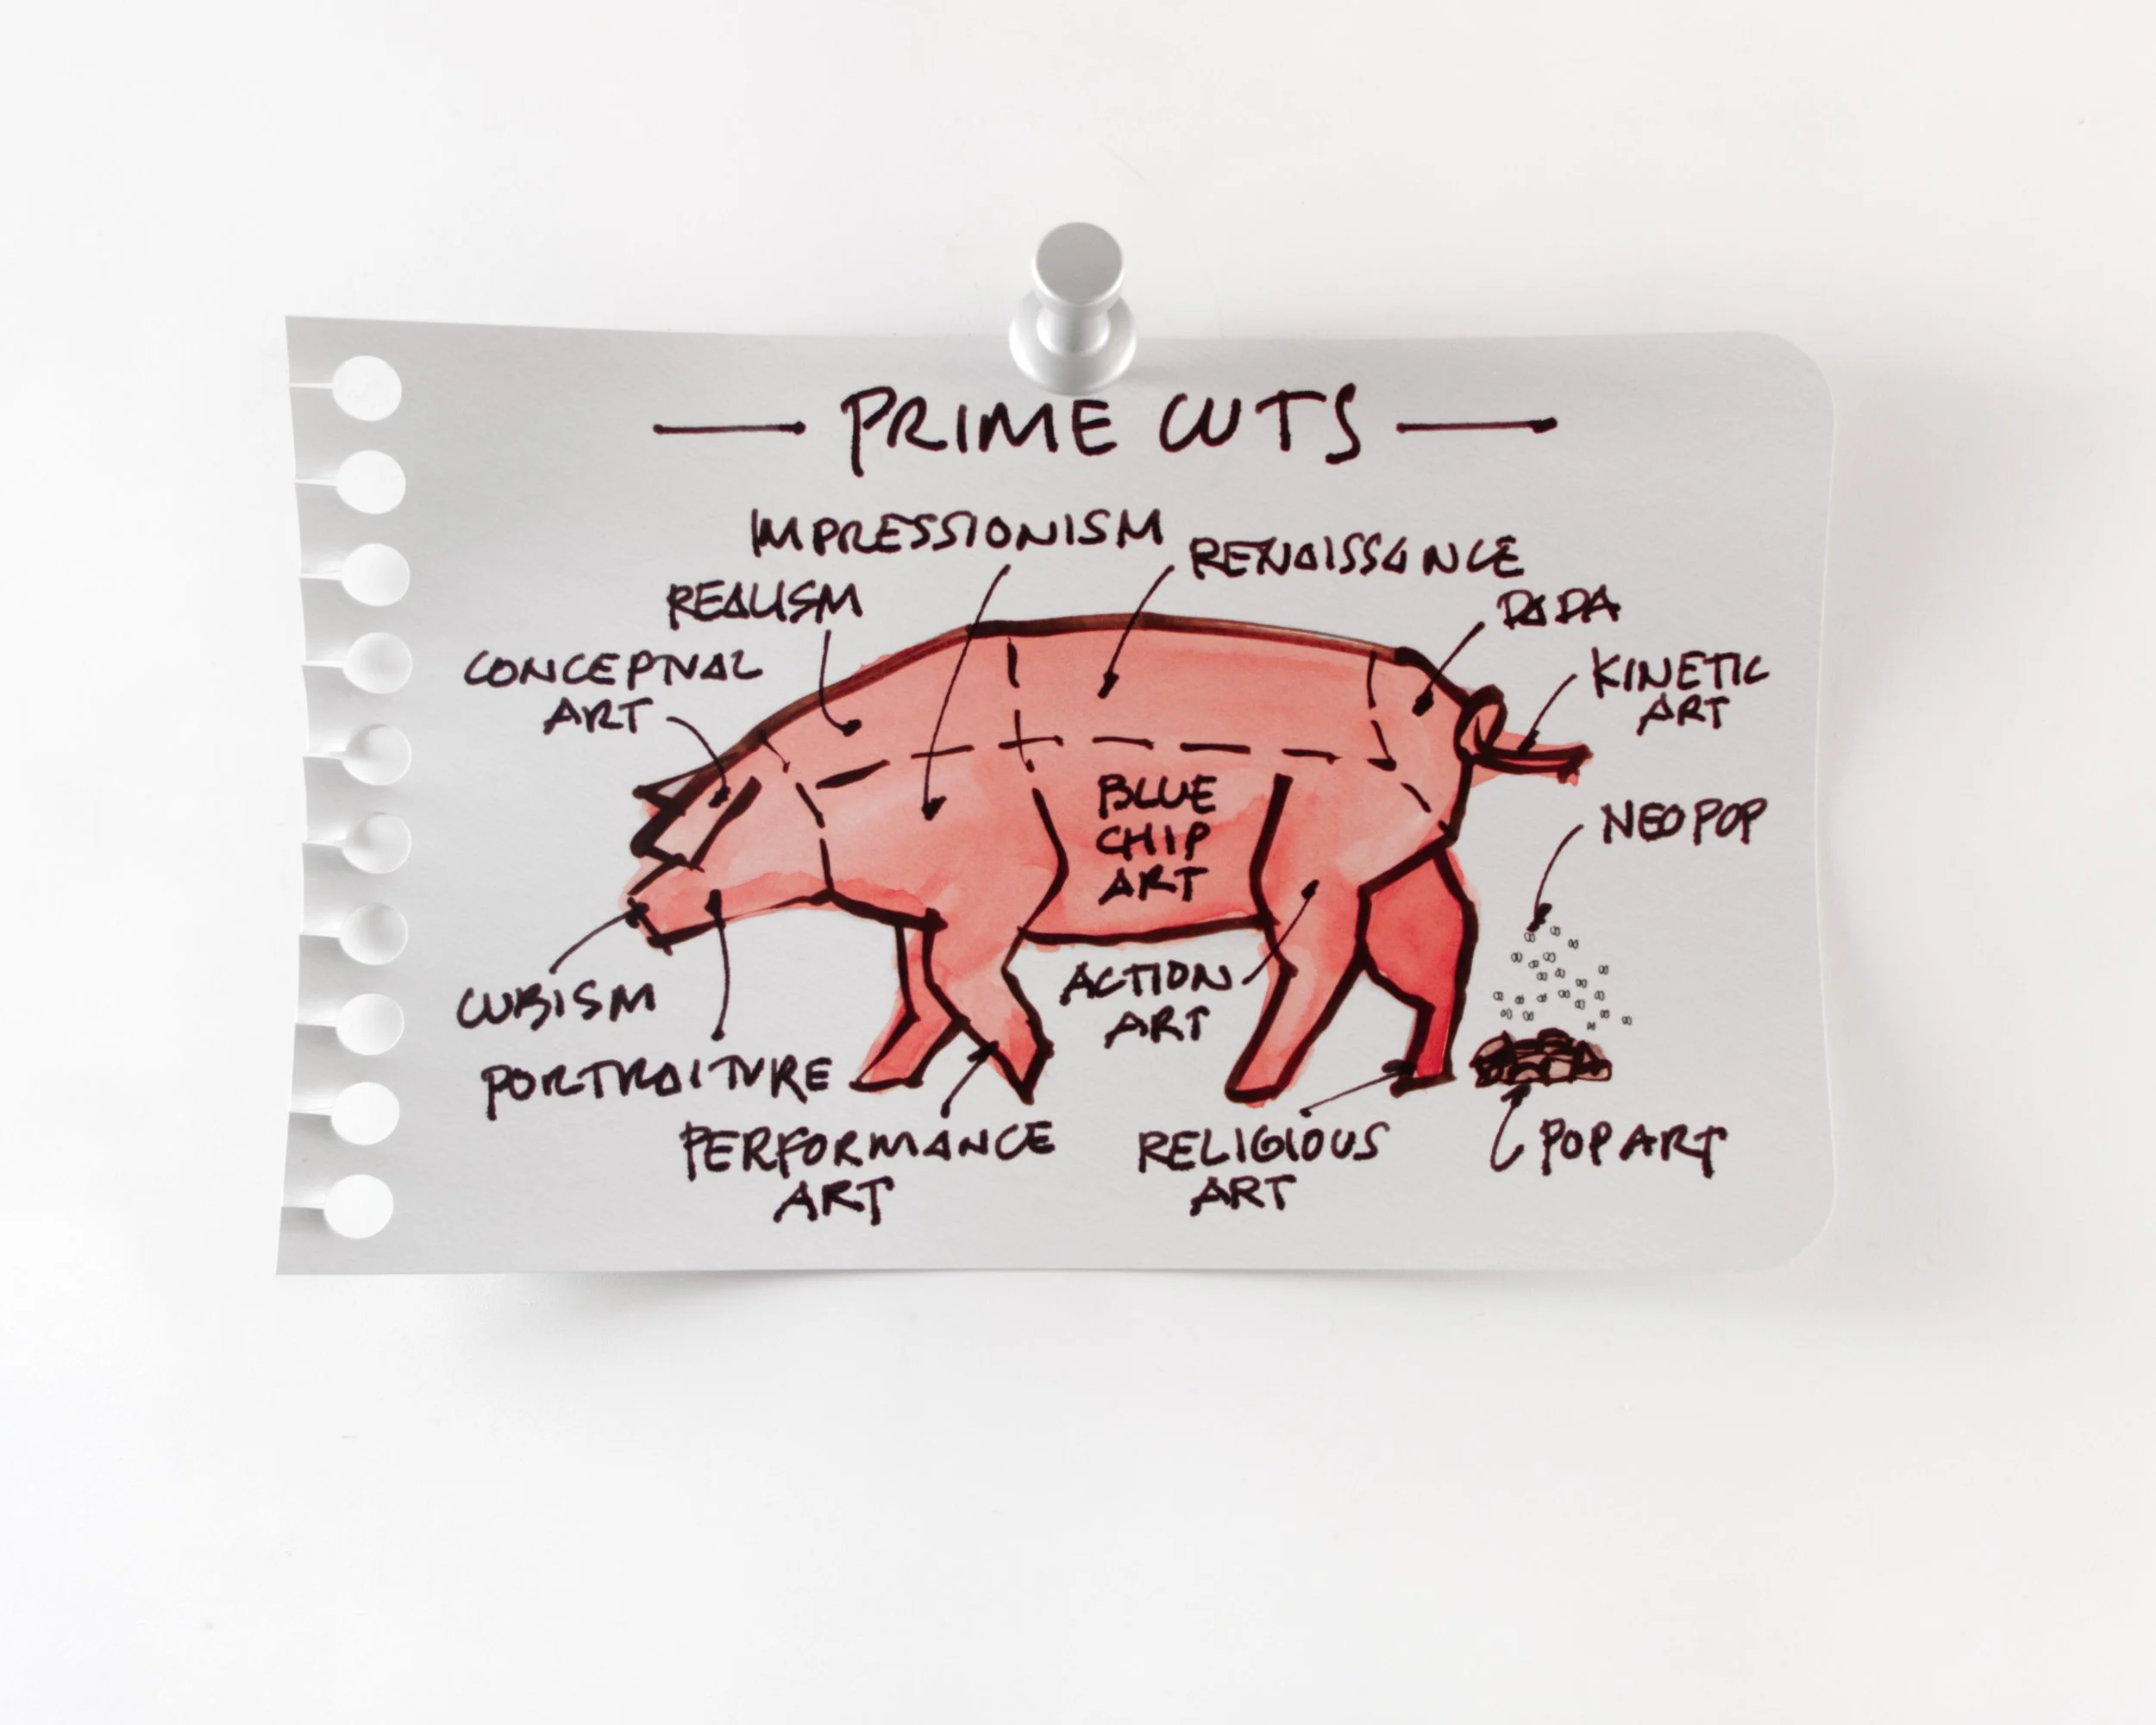 PRIME CUTS
IMPRESSIONISM
RENAISSANCE
REALISM
DADA
CONCEPTUAL
ART
KINETIC
ART
BLUE
CHIP
ART
NEO POP
CUBISM
ACTION
ART
PORTRAITURE
PERFORMANCE
ART
RELIGIOUS
ART
POP ART